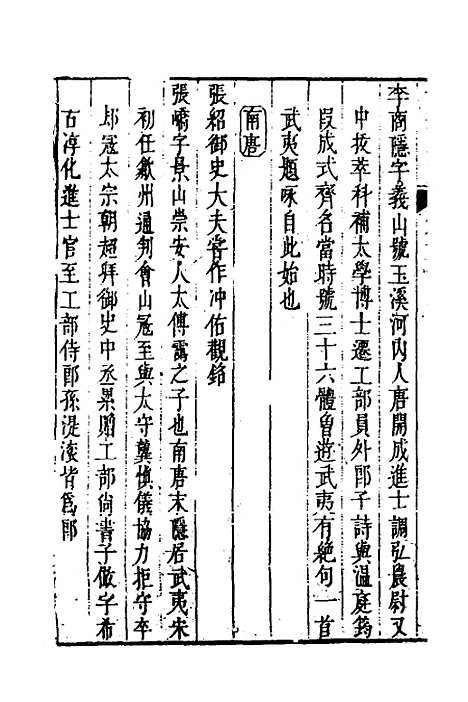 李商隱字義山號玉溪河內人唐開成進士調弘農尉又
中拔萃科補太學博士遷工部員外郎千詩與溫庭筠
段成式齊名當時號三十六體魯遊武夷有絕句一首
武夷題咏自此始也
南唐
張紹御史大夫嘗作冲佑觀銘
張嶠字景山崇安人太傅霭之子也南唐末隱居武夷宋
初任歙州通判會山冦至與太守龔慎儀協力拒守卒
却冦太宗朝超拜御史中丞累贈工部尚書子倣字希
古淳化進士官至工部侍郎孫湜浚皆爲郎